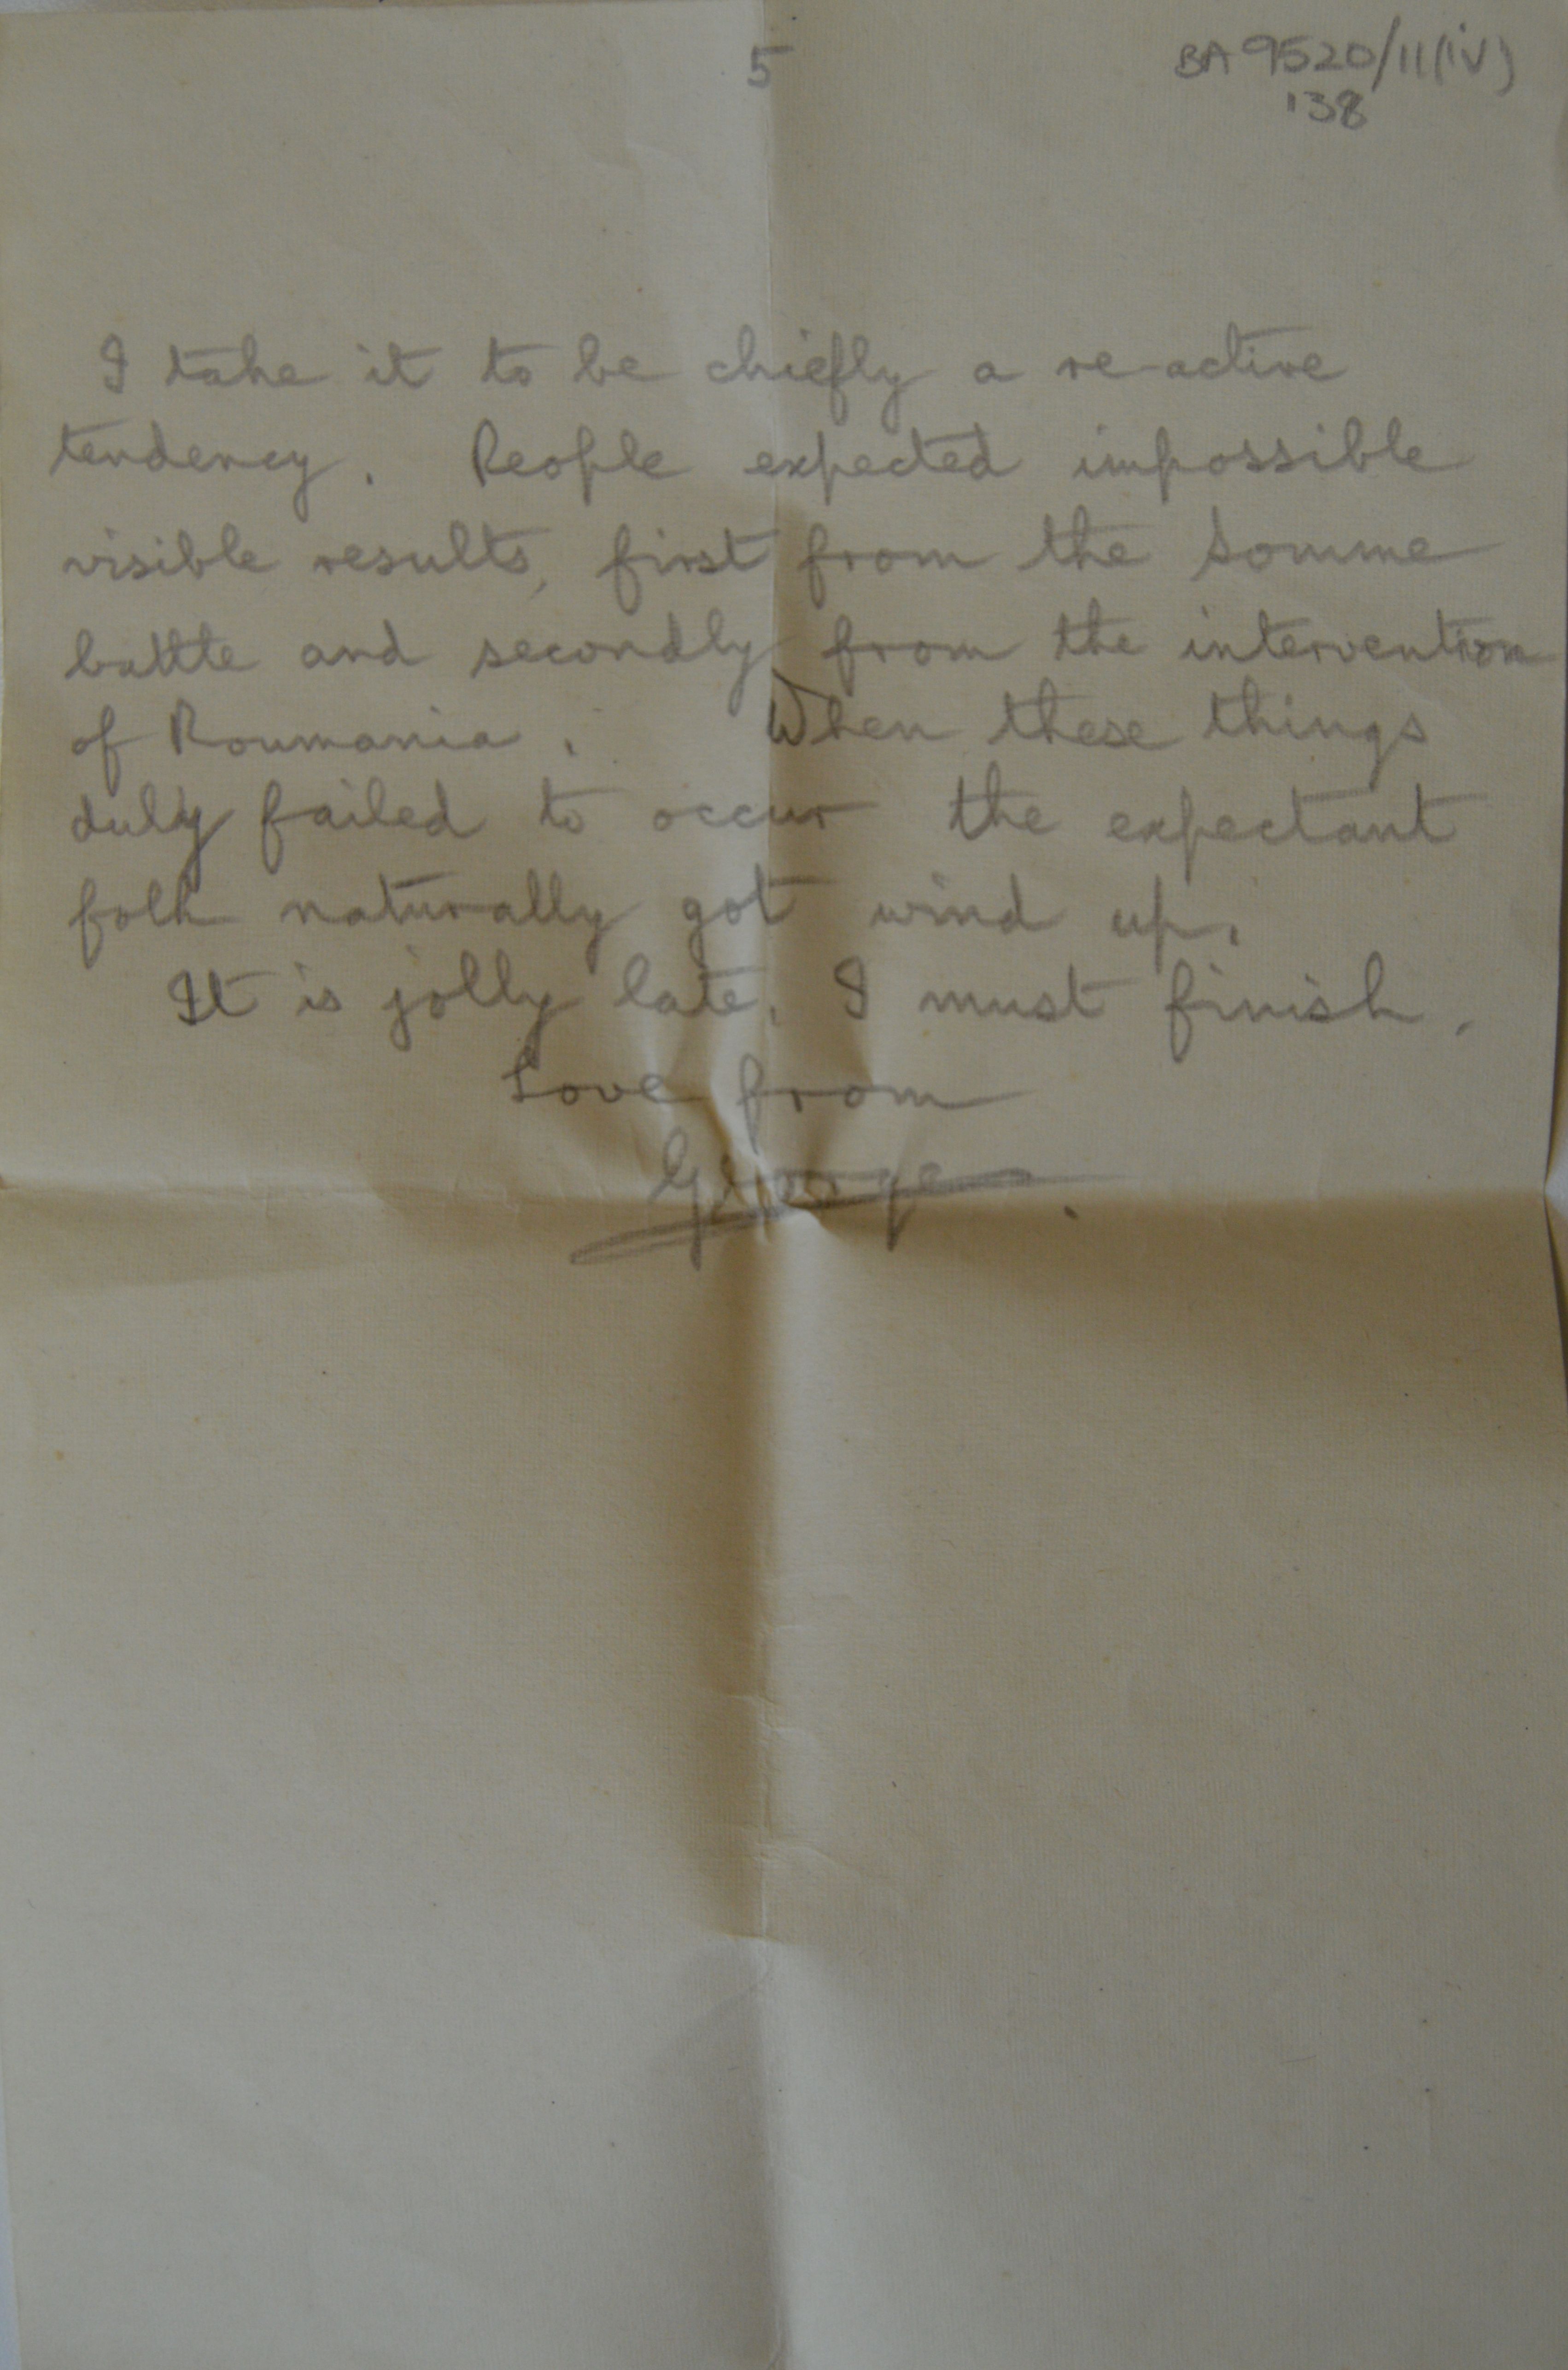 5
BA 9520/11(iv)
138
I take it to be chiefly a re-active
tendency. People expected impossible
visible results, first from the Somme
battle and secondly from the intervention
of Roumania. When these things
duly failed to occur the expectant
folk naturally got wind up.
It is jolly late. I must finish.
Love from
George.